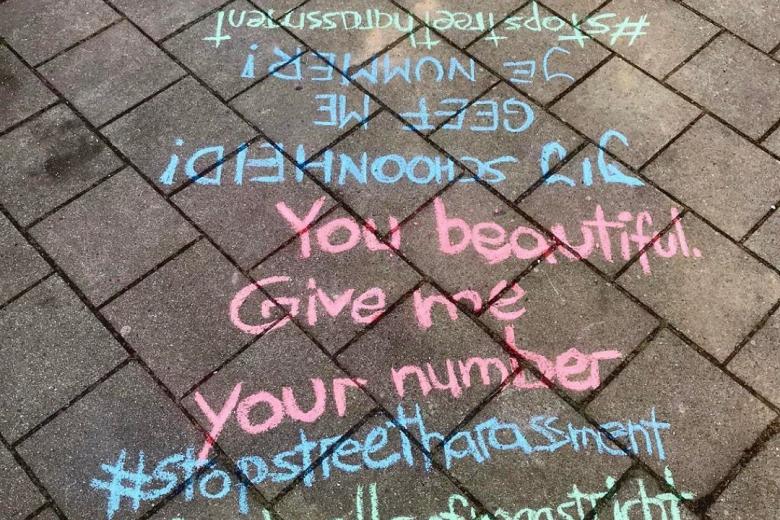 JIJ SCHOONHEID!
GEEF ME
JE NUMMER!
#stopstreetharassment
You beautiful.
Give me
your number
#stopstreetharassment